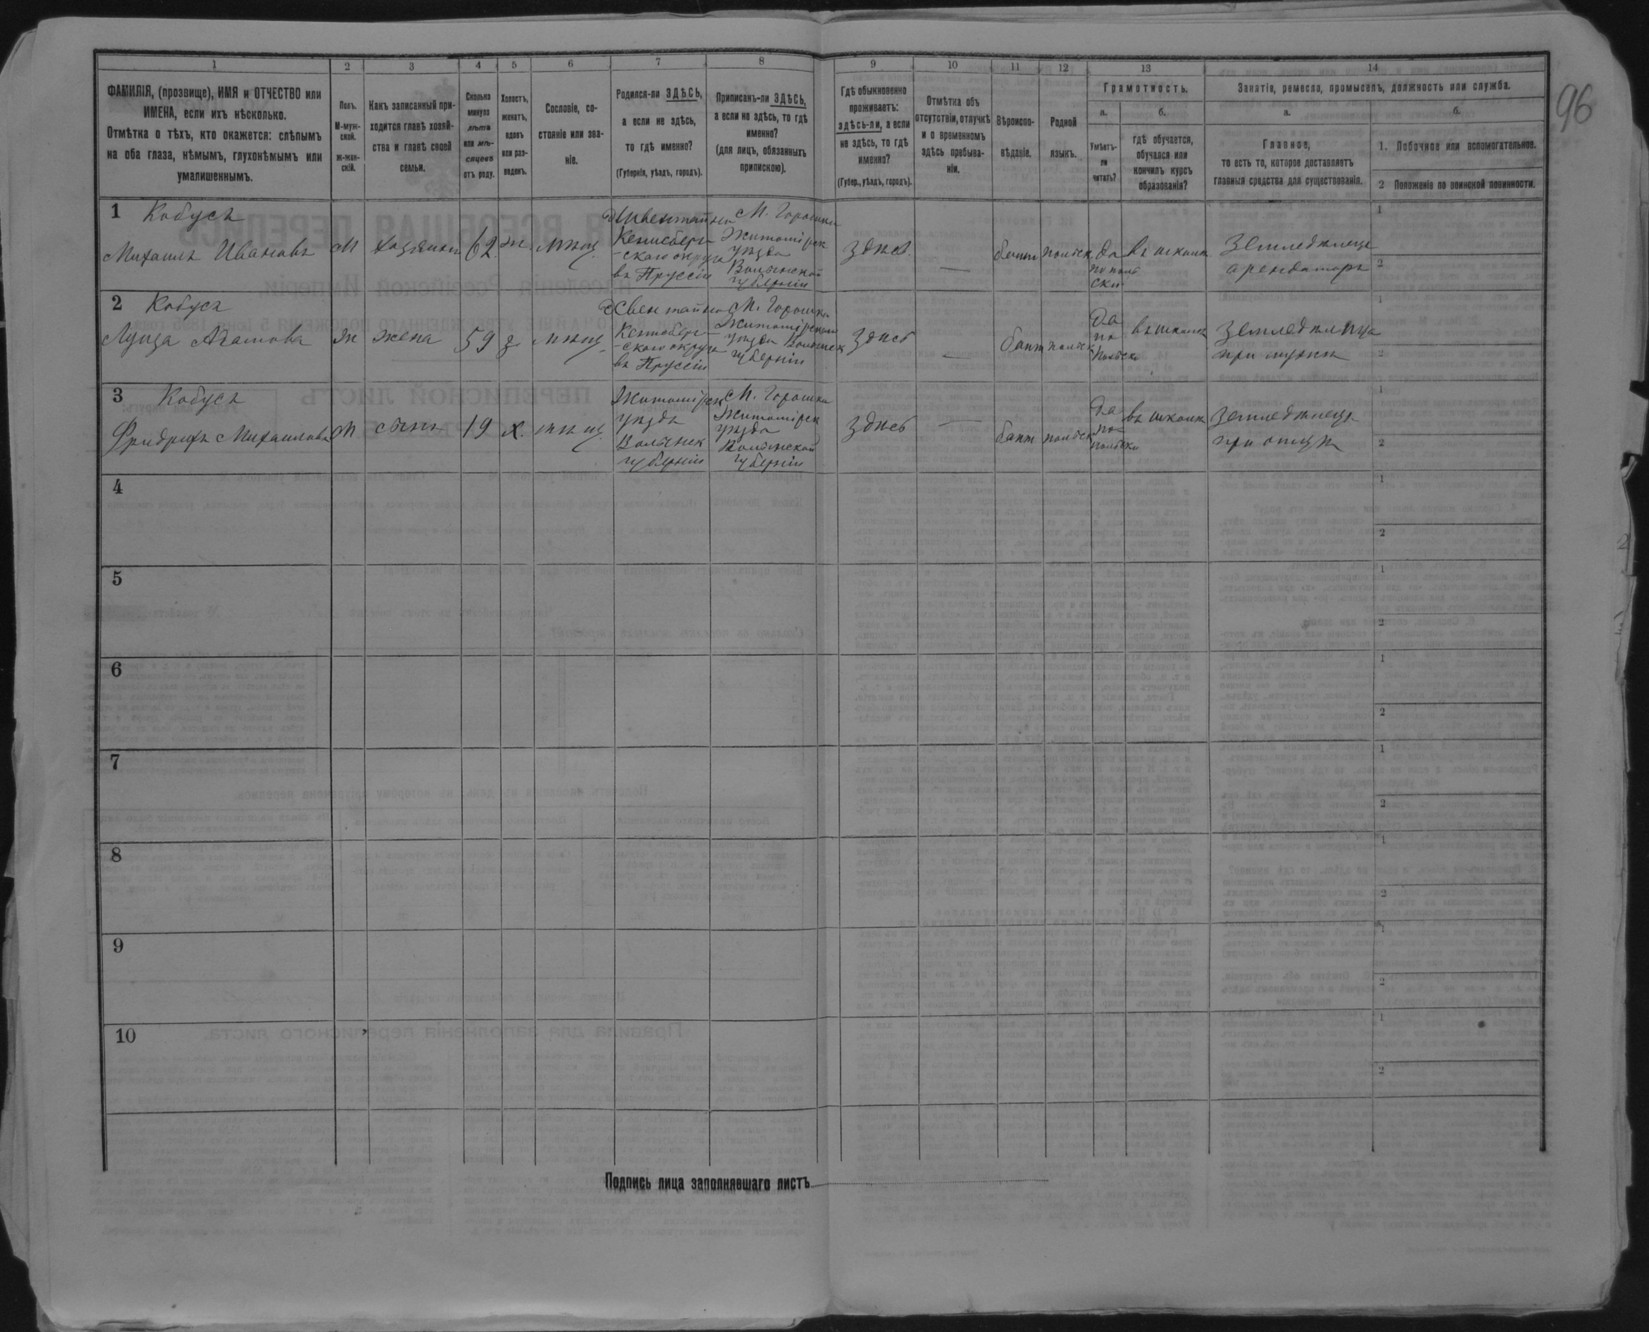 96
1 2 3 4 5 6 7 8 9 10 11 12 13 14
ФАМИЛІЯ, (прозвище), ИМЯ и ОТЧЕСТВО или
ИМЕНА, если ихъ нѣсколько.
Отмѣтка о тѣхъ, кто окажется: слѣпымъ
на оба глаза, нѣмымъ, глухонѣмымъ или
умалишеннымъ.
Полъ.
М-муж-
ской.
ж-жен-
скій.
Какъ записанный при-
ходится главѣ хозяй-
ства и главѣ своей
семьи.
Сколько
минуло
лѣтъ
или мѣ-
сяцевъ
отъ роду.
Холостъ,
женатъ,
вдовъ
или раз-
веденъ.
Сословіе, со-
стояніе или зва-
ніе.
Родился-ли ЗДѢСЬ,
а если не здѣсь,
то гдѣ именно?
(Губернія, уѣздъ, городъ).
Приписанъ-ли ЗДѢСЬ,
а если не здѣсь, то гдѣ
именно?
(для лицъ, обязанныхъ
припискою).
Гдѣ обыкновенно
проживаетъ:
здѣсь-ли, а если
не здѣсь, то гдѣ
именно?
(Губер., уѣздъ, городъ).
Отмѣтка объ
отсутствіи, отлучкѣ
и о временномъ
здѣсь пребыва-
ніи.
Вѣроиспо-
вѣданіе.
Родной
языкъ.
Грамотность.
а.
Умѣетъ-
ли
читать?
б.
гдѣ обучается,
обучался или
кончилъ курсъ
образованія?
Занятіе, ремесло, промыселъ, должность или служба.
а.
Главное,
то есть то, которое доставляетъ
главныя средства для существованія.
б.
1. Побочное или вспомогательное.
2 Положеніе по воинской повинности.
1 Кобусъ
Михаилъ Ивановъ
М
хозяинъ
62
ж
мѣщ.
Кенисберг-
скаго округа
въ Пруссіи
М. Горошки
Житомірск
уѣзда
Волынской
губерніи
здѣсь
—
бапт
польск
да
по поль
ски
въ школѣ
Земледѣлецъ
арендаторъ
1
2
2 Кобусъ
Луиза Адамова
ж
жена
59
з
мѣщ.
Свентайно
Кенисберг-
скаго округа
въ Пруссіи
М. Горошки
Житомірскаго
уѣзда Волынск
губерніи
здѣсь
—
бапт
польск
да
по
польски
въ школѣ
Земледѣлица
при мужѣ
1
2
3 Кобусъ
Фридрихъ Михаиловъ
М
сынъ
19
х.
мѣщ.
Житомірск
уѣзда
Волынск
губерніи
М. Горошки
Житомірск
уѣзда
Волынской
губерніи
здѣсь
бапт
польск
да
по
польски
въ школѣ
Земледѣлецъ
при отцѣ
1
2
4
1
2
5
1
2
6
1
2
7
1
2
8
1
2
9
1
2
10
1
2
Подпись лица заполнявшаго листъ